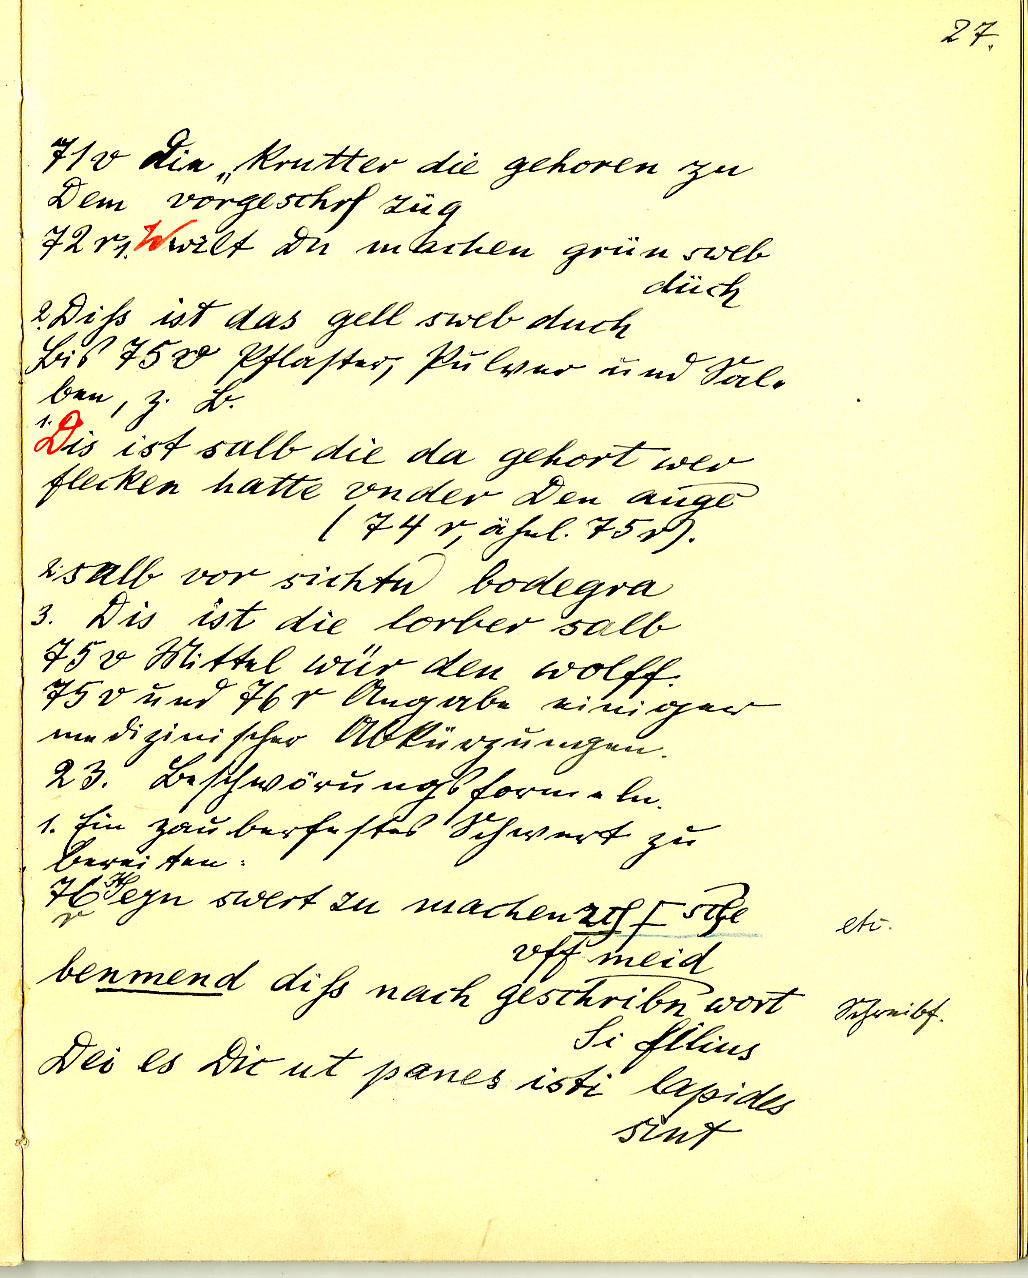 27.
71v Die „Krutter die gehoren zu
Dem vorgeschrf züg
72 r 1. Wwilt Du machen grün sweb
düch
2. Diſs ist das gell sweb duch
bis 75v Pflaster, Pulver und Sal-
ben, z. B.
1. Dis ist salb die da gehort wer
flecken hatte vnder Den auge
(74 r, ähnl. 75r).
2. salb vor sichtu bodegra
3. Dis ist die lorber salb
75v Mittel wür den wolff.
75v und 76r Angabe einiger
medizinischer Abkürzungen.
23. Beschwörungsformeln.
1. Ein zauberfestes Schwert zu
bereiten:
76 r eyn swert zu machen etc.
vff meid
benmend diſs nach geschribn wort Schreibf.
Si filius
Dei es Dic ut panes isti lapides
sint